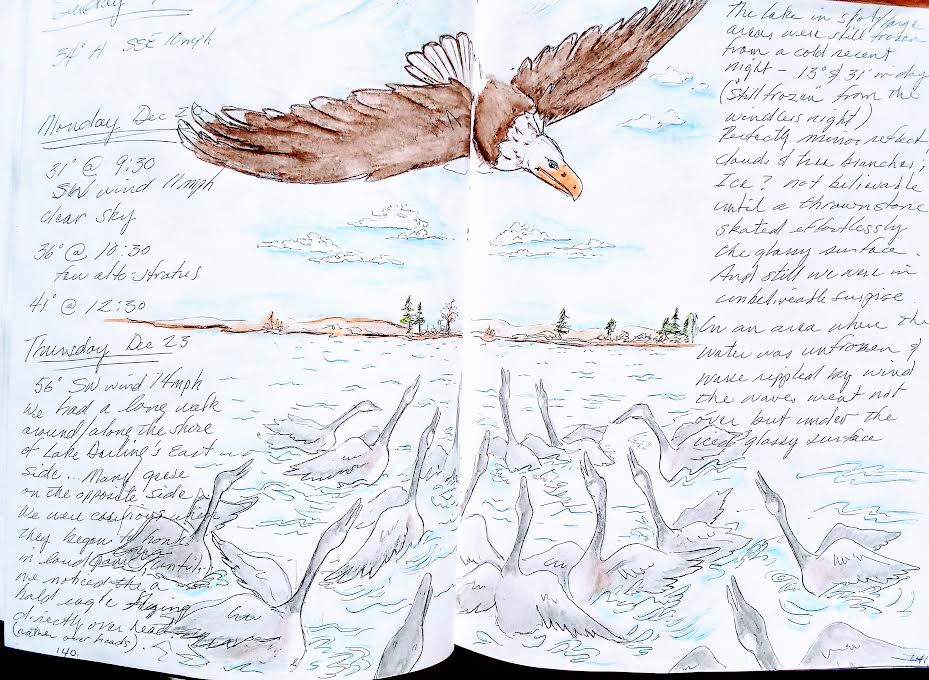 34° H SSE 10 mph
Monday Dec 2
31° @ 9:30
SW wind 11 mph
clear sky
36° @ 10:30
few alto-stratus
41° @ 12:30
Thursday Dec 23
56° SW wind 14 mph
we had a long walk
around/along the shore
of Lake Darling's East
side... Many geese
on the opposite side
We were
they began to honk
in loud panic, until
we noticed a
bald eagle flying
directly over head
(rather our heads).
140.
The lake in spots/large
areas were still frozen
from a cold recent
night - 13° & 31° in day
("Still frozen" from the
windless night)
Perfectly mirror reflect
clouds & tree branches;
Ice? not believable
until a thrown stone
skated effortlessly
the glassy surface.
And still we were in
unbelieveable surprise.
In an area where the
water was unfrozen &
wave rippled by wind
the waves went not
over but under the
iced glassy surface
141